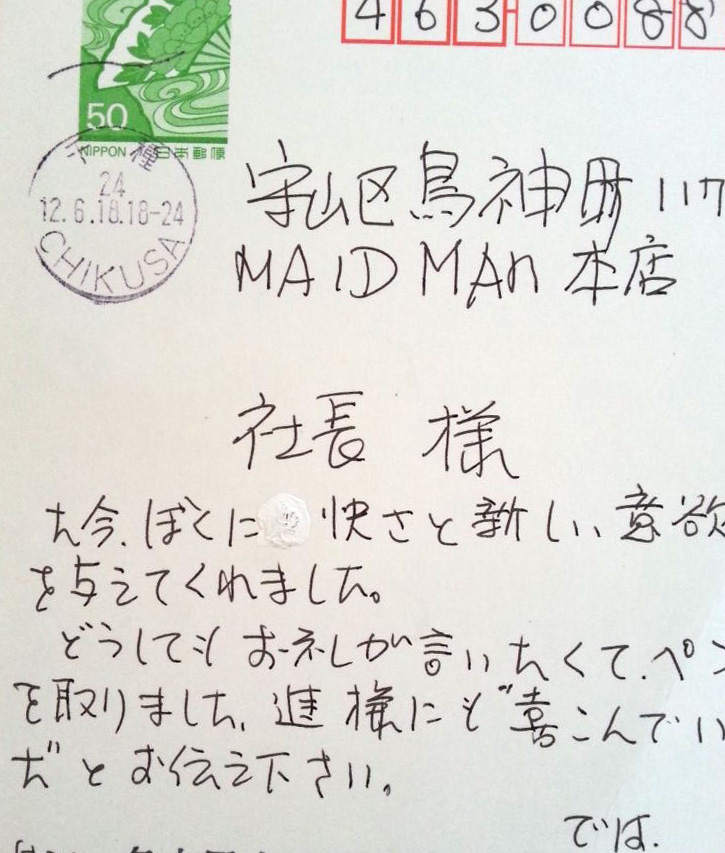 463-0088
50
NIPPON 日本郵便
千種
24
12.6.18.18-24
CHIKUSA
守山区鳥神町117
MAID MAN 本店
社長 様
た今、ぼくに 快さと新しい意欲
を与えてくれました。
どうしてもお礼が言いたくて、ペン
を取りました、進様にも"喜こんでい
だ"とお伝え下さい。
では、